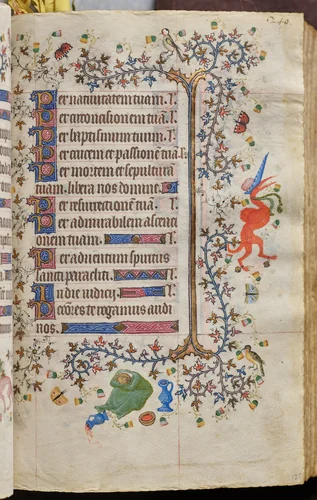 Per natiuitatem tuam. l.
Per circoncisionem tuā. l.
Per baptismum tuum. l.
Per crucem et passionē tuā. l.
Per mortem et sepulturā
tuam. libera nos domine. l.
Per resurrectionē tuā. l.
Per admirabilem ascenti
onem tuam. l.
Per aduentum spiritus
sancti paracliti. l.
In die iudicij. l.
Peccatores te rogamus audi
nos.